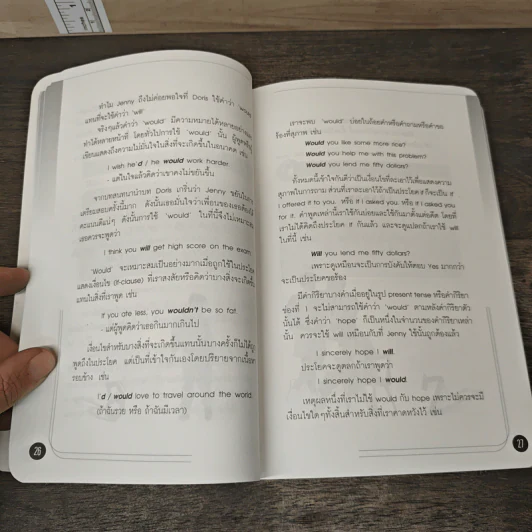 ทำไม Jenny ถึงไม่ค่อยพอใจที่ Doris ใช้คำว่า 'would'
แทนที่จะใช้คำว่า 'will'
จริงๆแล้วคำว่า 'would' มีความหมายได้หลายอย่างและ
ทำได้หลายหน้าที่ โดยทั่วไปการใช้ 'would' นั้น ผู้พูดหรือผู้
เขียนแสดงถึงความไม่มั่นใจในสิ่งที่จะเกิดขึ้นในอนาคต เช่น
I wish he'd / he would work harder.
- แต่ในใจแล้วคิดว่าเขาคงไม่ขยันขึ้น
จากบทสนทนานำบท Doris เกริ่นว่า Jenny ขยันในการ
เตรียมสอบครั้งนี้มาก ดังนั้นเธอมั่นใจว่าเพื่อนของเธอต้องได้
คะแนนดีแน่ๆ ดังนั้นการใช้ 'would' ในที่นี้จึงไม่เหมาะสม
เธอควรจะพูดว่า
I think you will get high score on the exam.
'Would' จะเหมาะสมเป็นอย่างมากเมื่อถูกใช้ในประโยค
แสดงเงื่อนไข (If-clause) ที่เราสงสัยหรือคิดว่าบางสิ่งจะเกิดขึ้น
แทนในสิ่งที่เราพูด เช่น
If you ate less, you wouldn't be so fat.
- แต่ผู้พูดคิดว่าเธอกินมากเกินไป
เงื่อนไขสำหรับบางสิ่งที่จะเกิดขึ้นแทนนั้นบางครั้งก็ไม่ได้ถูก
พูดถึงในประโยค แต่เป็นที่เข้าใจกันเองโดยปริยายจากเนื้อหา
รอบข้าง เช่น
I'd / would love to travel around the world.
(ถ้าฉันรวย หรือ ถ้าฉันมีเวลา)
26
เราจะพบ 'would' บ่อยในถ้อยคำหรือคำถามหรือคำขอ
ร้องที่สุภาพ เช่น
Would you like some more rice?
Would you help me with this problem?
Would you lend me fifty dollars?
ทั้งหมดนี้เข้าใจกันดีว่าเป็นเงื่อนไขที่ละเอาไว้เพื่อแสดงความ
สุภาพในการถาม ส่วนที่เราละเอาไว้ถ้าเป็นประโยค if ก็จะเป็น if
I offered it to you. หรือ if I asked you. หรือ if I asked you
for it. คำพูดเหล่านี้เราใช้กันบ่อยและใช้กันมาตั้งแต่อดีต โดยที่
เราไม่ได้คิดถึงประโยค if กันแล้ว และจะดูแปลกถ้าเราใช้ will
ในที่นี้ เช่น
Will you lend me fifty dollars?
เพราะดูเหมือนจะเป็นการบังคับให้ตอบ Yes มากกว่า
จะเป็นประโยคขอร้อง
มีคำกริยาบางคำเมื่ออยู่ในรูป present tense หรือคำกริยา
ช่องที่ 1 จะไม่สามารถใช้คำว่า 'would' ตามหลังคำกริยาตัว
นั้นได้ ซึ่งคำว่า 'hope' ก็เป็นหนึ่งในจำนวนของคำกริยาเหล่า
นั้น ควรจะใช้ will เหมือนกับที่ Jenny ใช้นั้นถูกต้องแล้ว
I sincerely hope I will.
ประโยคจะดูตลกถ้าเราพูดว่า
I sincerely hope I would.
เหตุผลหนึ่งที่เราไม่ใช้ would กับ hope เพราะไม่ควรจะมี
เงื่อนไขใดๆทั้งสิ้นสำหรับสิ่งที่เราคาดหวังไว้ เช่น
27